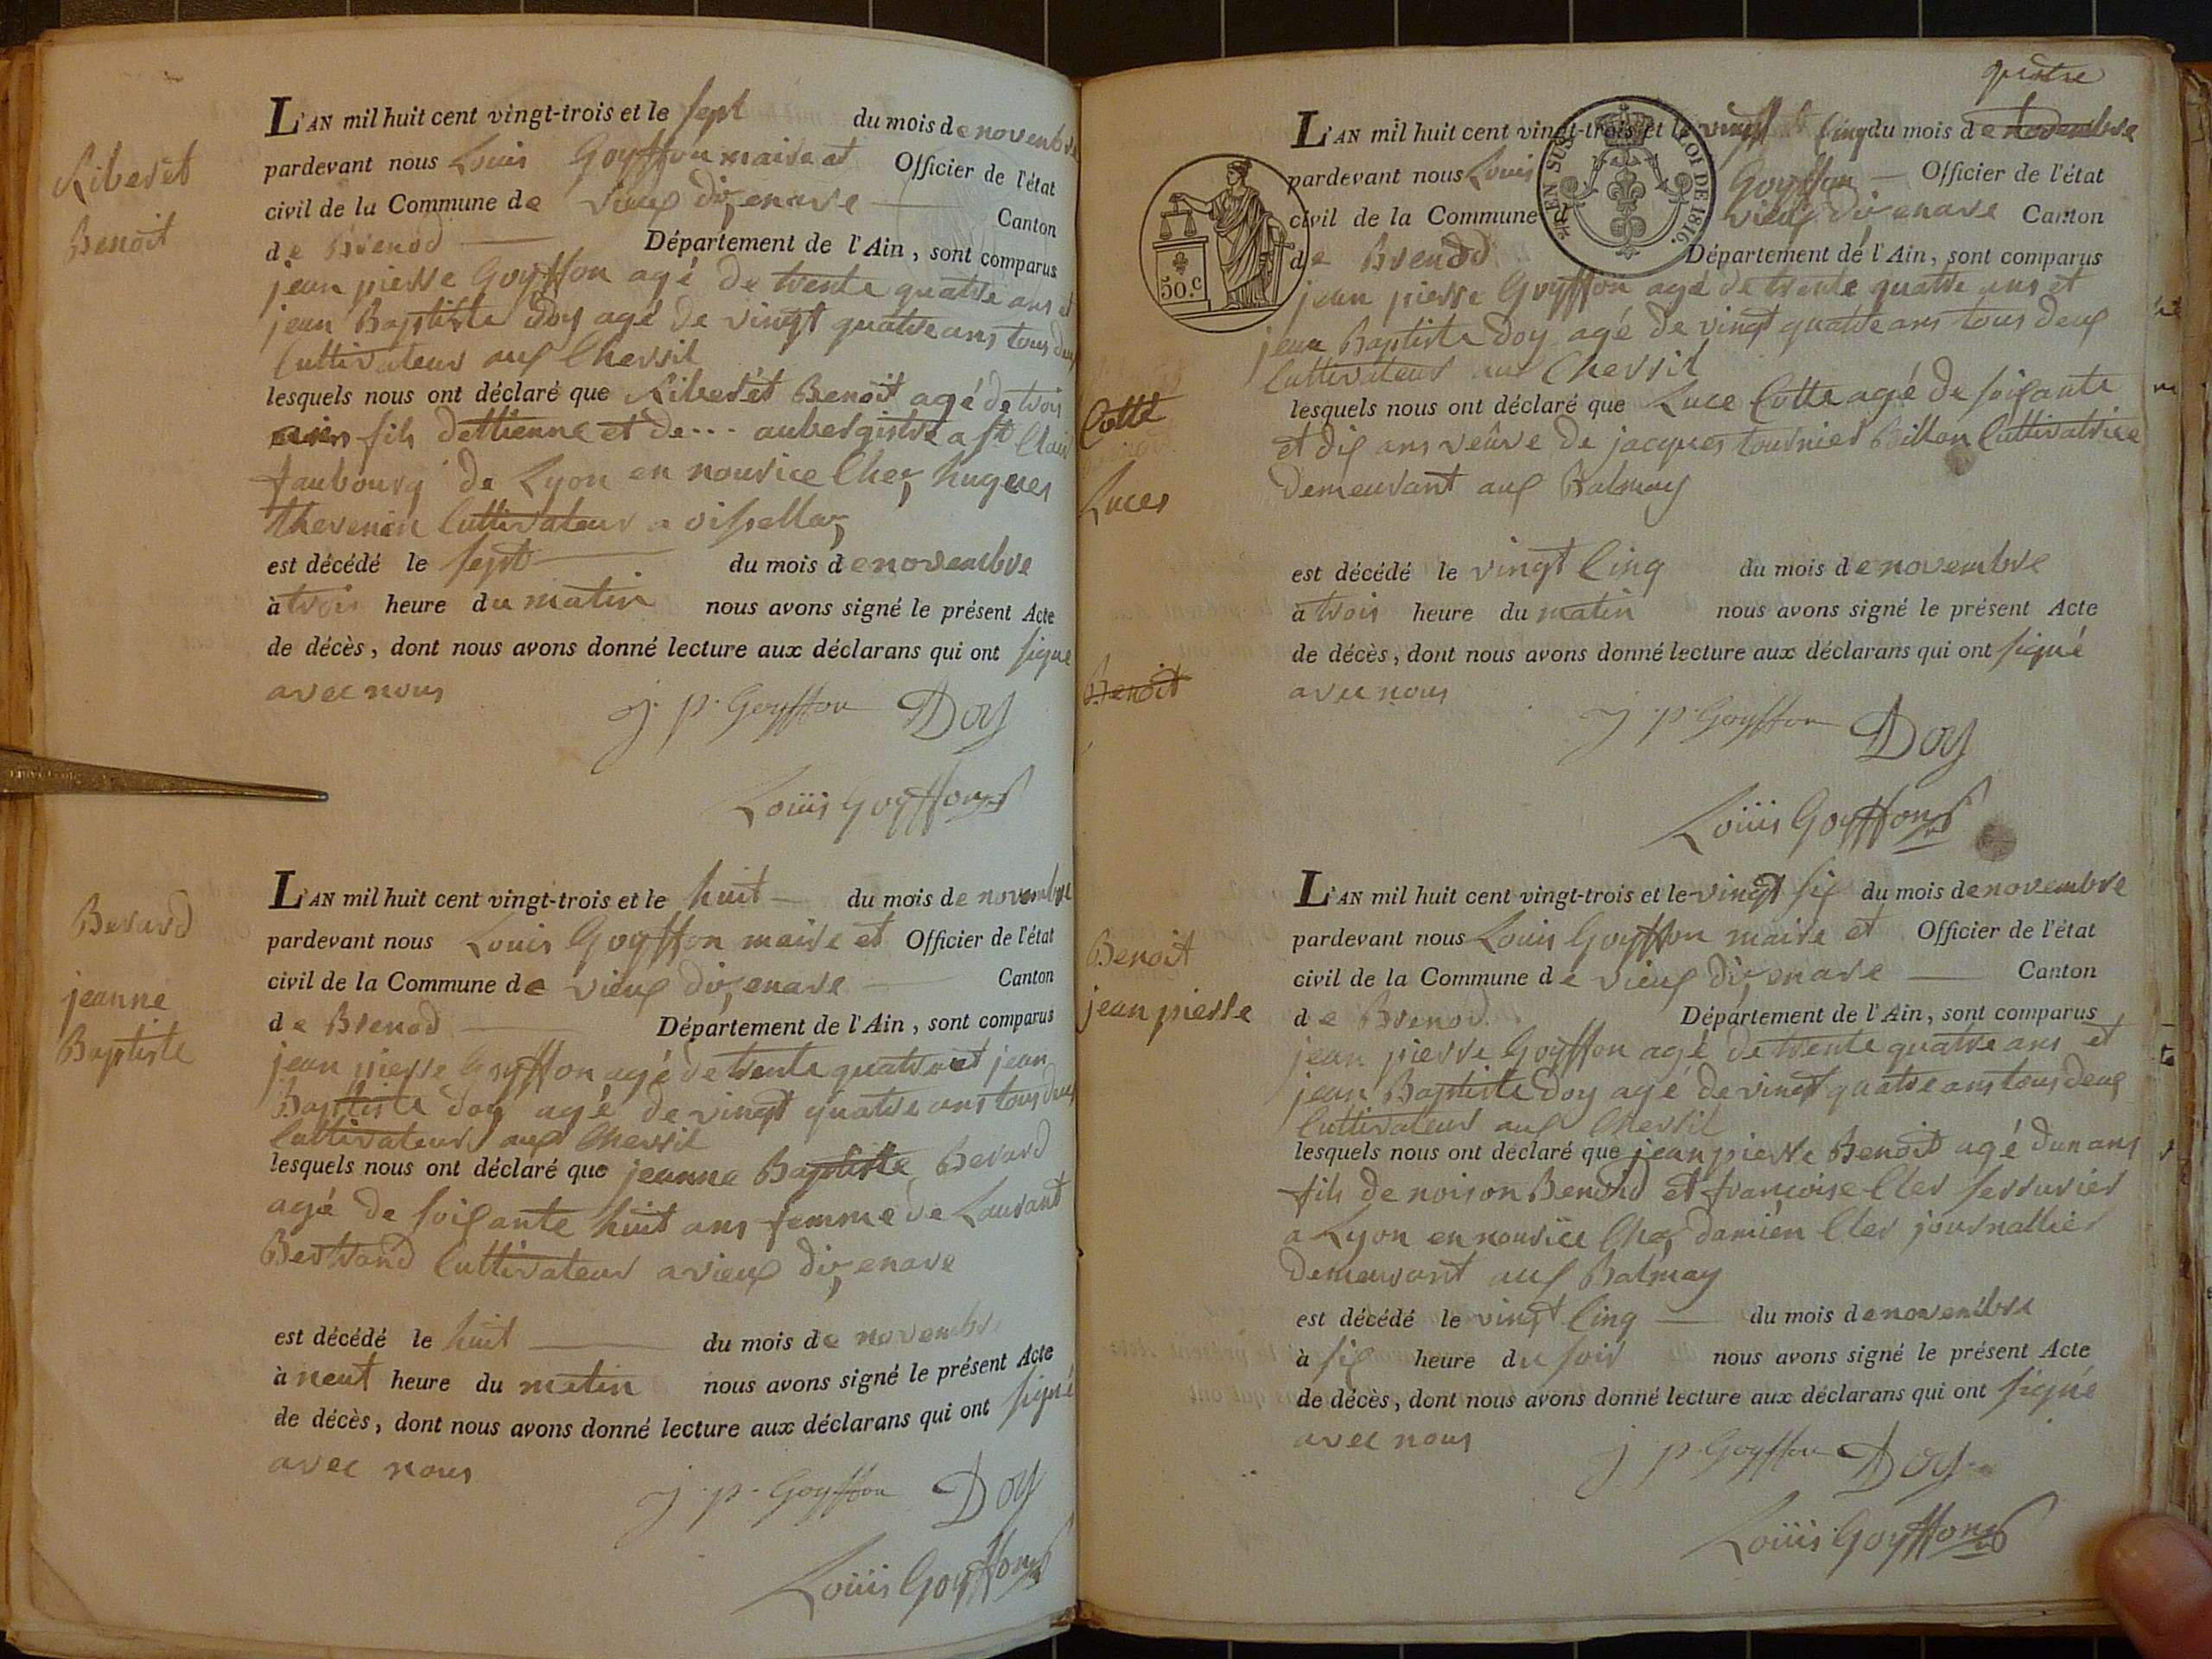 Riberet
Benoit
L'AN mil huit cent vingt-trois et le sept du mois de novembre
pardevant nous Louis Goyffon maire et Officier de l'état
civil de la Commune de vieux dizenave Canton
de Brenod Département de l'Ain, sont comparus
jean pierre Goyffon agé de trente quatre ans et
jean Baptiste Doy agé de vingt quatre ans tous deux
Cultivateur aux Chevril
lesquels nous ont déclaré que Riberét Benoit agé de trois
fils dettienne et de ... aubergistre a st Clair
faubourg de Lyon en nourice Chez hugues
thevenin Cultivateur a
est décédé le sept du mois de novembre
à trois heure du matin nous avons signé le présent Acte
de décès, dont nous avons donné lecture aux déclarans qui ont signé
avec nous
j. p. Goyffon Doy
Loüis Goyffon
Berard
jeanne
Baptiste
L'AN mil huit cent vingt-trois et le huit du mois de novembre
pardevant nous Louis Goyffon maire et Officier de l'état
civil de la Commune de vieux dizenave Canton
de Brenod Département de l'Ain, sont comparus
jean pierre Goyffon agé de trente quatre et jean
Baptiste doy agé de vingt quatre ans tous deux
Cultivateur aux Chevril
lesquels nous ont déclaré que jeanne Baptiste Berard
agé de soixante huit ans femme de Laurant
Bertrand Cultivateur a vieux dizenave
est décédé le huit du mois de novembre
à neuf heure du matin nous avons signé le présent Acte
de décès, dont nous avons donné lecture aux déclarans qui ont signé
avec nous
j. p. Goyffon Doy
Loüis Goyffon
quatre
L'AN mil huit cent vingt-trois et le vingt Cinq du mois de novembre
pardevant nous Louis Goyffon Officier de l'état
civil de la Commune vieux dizenave Canton
de Brenod Département de l'Ain, sont comparus
EN SUS LOI DE 1816.
50.c
jean pierre Goyffon agé de trente quatre ans et
jean Baptiste Doy agé de vingt quatre ans tous deux
Cultivateur aux Chevril
Cotte
Luces
lesquels nous ont déclaré que Luce Cotte agé de soixante
et dix ans veûve de jacques tournier Billon Cultivatrice
demeurant aux Balmay
est décédé le vingt Cinq du mois de novembre
à trois heure du matin nous avons signé le présent Acte
de décès, dont nous avons donné lecture aux déclarans qui ont signé
Benoit
avec nous
j. p. Goyffon Doy
Loüis Goyffon
L'AN mil huit cent vingt-trois et le vingt six du mois de novembre
pardevant nous Louis Goyffon maire et Officier de l'état
Benoit
jean pierre
civil de la Commune de vieux dizenave Canton
de Brenod Département de l'Ain, sont comparus
jean pierre Goyffon agé de trente quatre ans et
jean Baptiste Doy agé de vingt quatre ans tous deux
Cultivateur aux Chevril
lesquels nous ont déclaré que jean pierre Benoit agé dun ans
fils de et francoise Cler serrurier
a Lyon en nourice Chez damien Cler journallier
demeurant aux Balmay
est décédé le vingt Cinq du mois de novembre
à six heure du soir nous avons signé le présent Acte
de décès, dont nous avons donné lecture aux déclarans qui ont signé
avec nous
j. p. Goyffon Doy
Loüis Goyffon